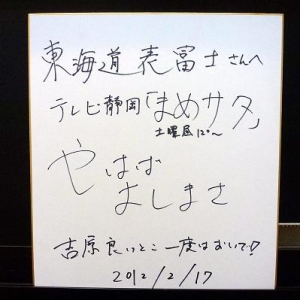 東海道表富士さんへ
テレビ静岡「まめサタ」
土曜昼12:00〜
やはば
よしまさ
吉原良いとこ一度はおいで!!
2012/2/17